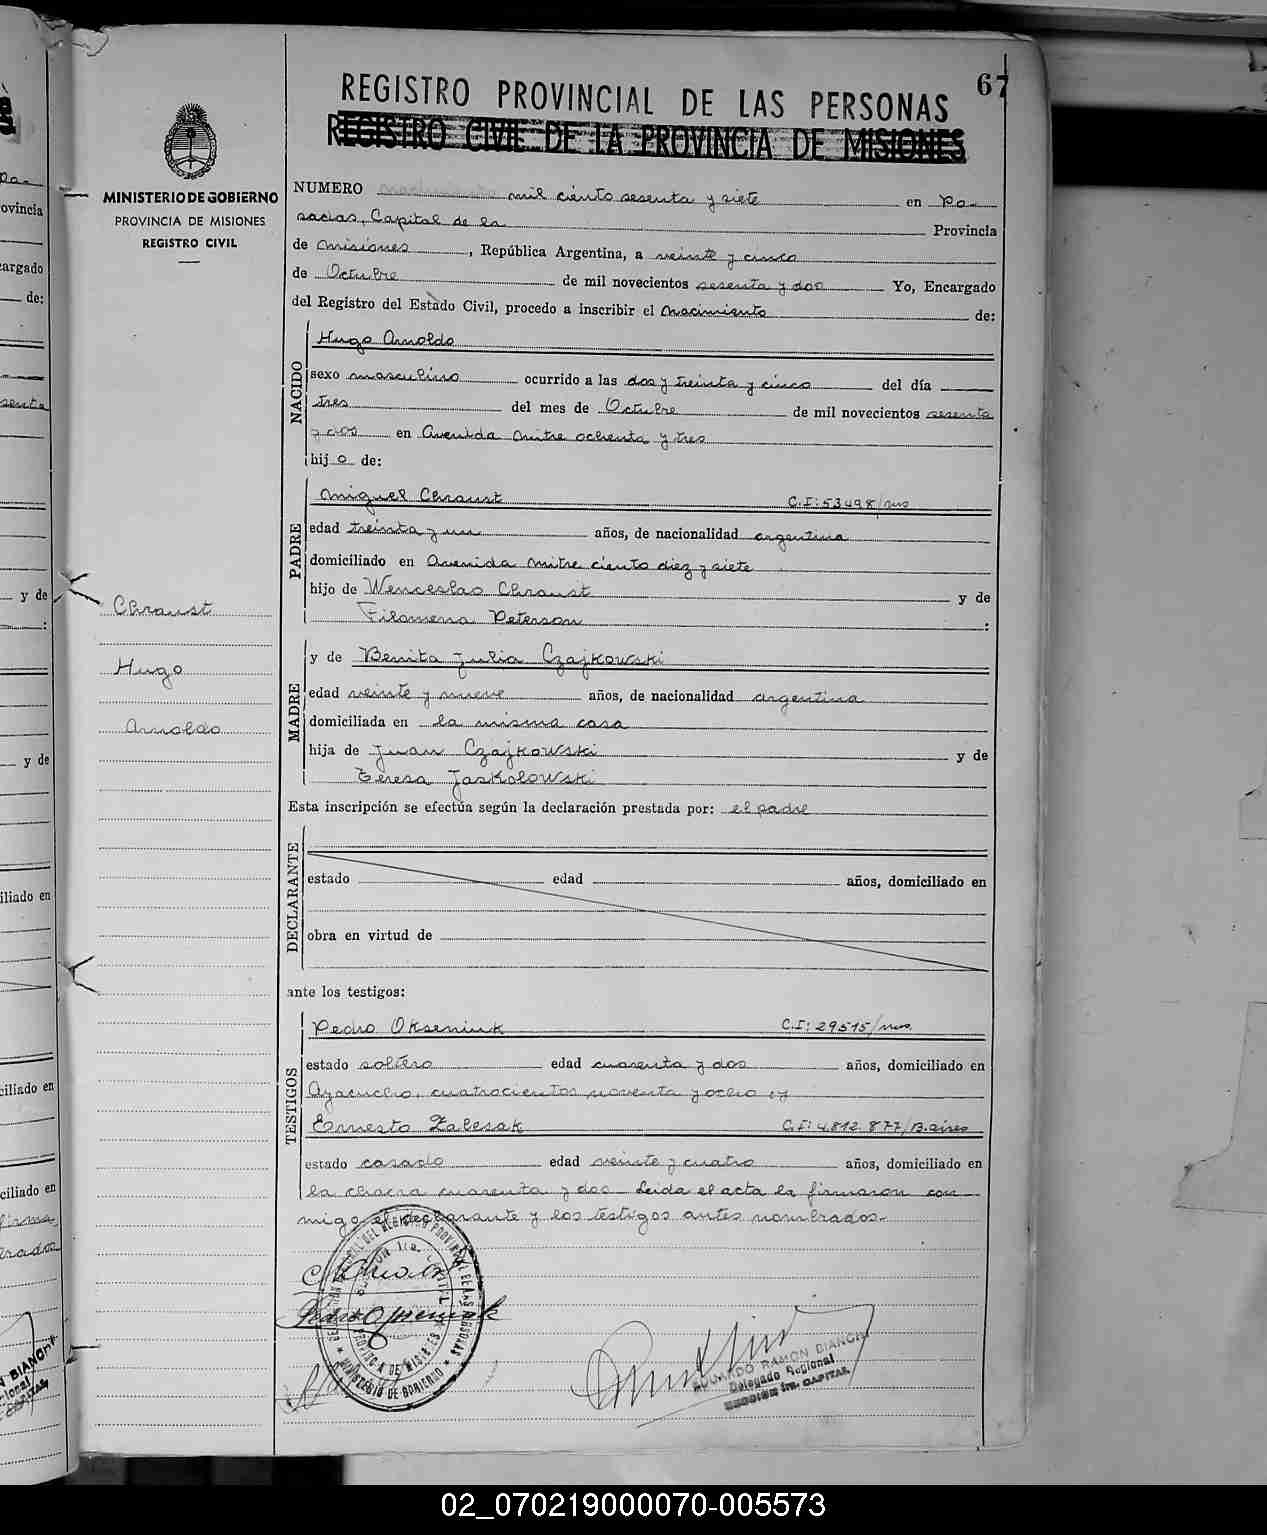 67
REGISTRO PROVINCIAL DE LAS PERSONAS
REGISTRO CIVIL DE LA PROVINCIA DE MISIONES
MINISTERIO DE GOBIERNO
PROVINCIA DE MISIONES
REGISTRO CIVIL
NUMERO mil ciento sesenta y siete en Po-
sadas, Capital de la Provincia
de Misiones, República Argentina, a veinte y cinco
de Octubre de mil novecientos sesenta y dos Yo, Encargado
del Registro del Estado Civil, procedo a inscribir el Nacimiento de:
NACIDO
Hugo Arnoldo
sexo masculino ocurrido a las dos y treinta y cinco del día
tres del mes de Octubre de mil novecientos sesenta
y dos en Avenida Mitre ochenta y tres
hijo de:
PADRE
Miguel Chraust C.I: 53498/mis
edad treinta y un años, de nacionalidad argentina
domiciliado en Avenida Mitre ciento diez y siete
hijo de Wenceslao Chraust y de
Filomena Peterson :
Chraust
Hugo
Arnoldo
MADRE
y de Benita Julia Czajkowski
edad veinte y nueve años, de nacionalidad argentina
domiciliada en la misma casa
hija de Juan Czajkowski y de
Teresa Jaskolowski
Esta inscripción se efectúa según la declaración prestada por: el padre
DECLARANTE
estado edad años, domiciliado en
obra en virtud de
ante los testigos:
TESTIGOS
Pedro Okseniuk C.I: 29515/mis.
estado soltero edad cuarenta y dos años, domiciliado en
Ayacucho, cuatrocientos noventa y ocho y
Ernesto Zalesak C.I: 4.812.877/B.aires
estado casado edad veinte y cuatro años, domiciliado en
la chacra cuarenta y dos - Leida el acta la firmaron con-
migo el declarante y los testigos antes nombrados.-
PROVINCIA DE MISIONES
MINISTERIO DE GOBIERNO
EDUARDO RAMON BIANCHI
Delegado Regional
SECCION 1ra. CAPITAL
02_070219000070-005573